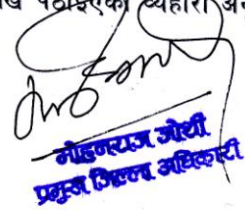 पठाइएको व्यहोरा
मोहनराज जोशी
प्रमुख जिल्ला अधिकारी